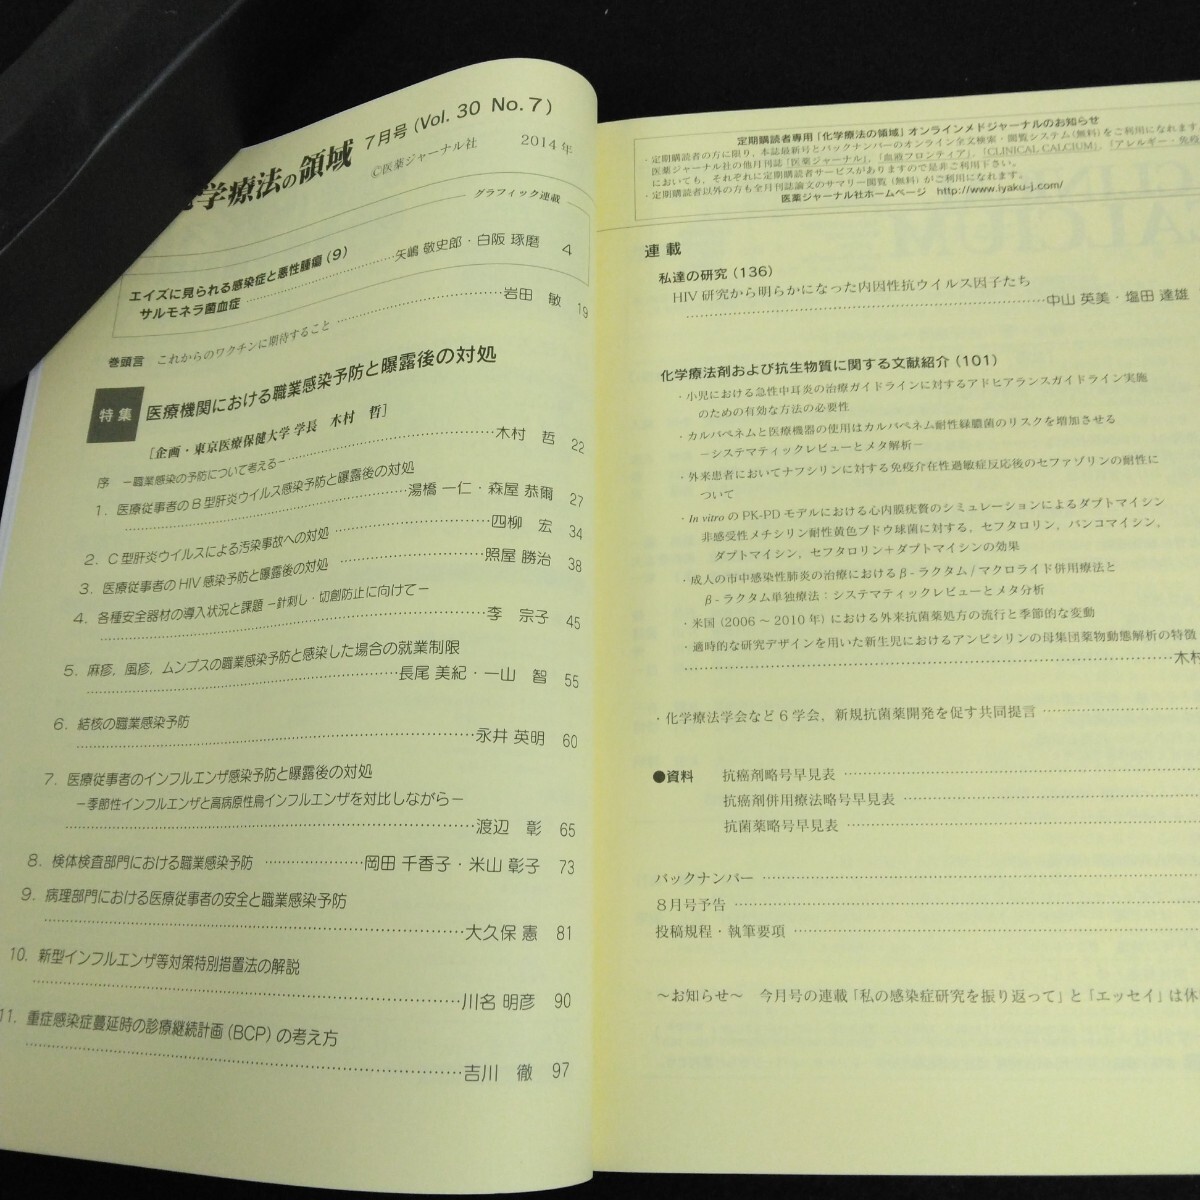 学療法の領域 7月号 (Vol. 30 No. 7)
©医薬ジャーナル社 2014年
グラフィック連載
エイズに見られる感染症と悪性腫瘍 (9)
サルモネラ菌血症 矢嶋 敬史郎・白阪 琢磨 4
巻頭言 これからのワクチンに期待すること 岩田 敏 19
特集 医療機関における職業感染予防と曝露後の対処
[企画・東京医療保健大学 学長 木村 哲]
序 －職業感染の予防について考える－ 木村 哲 22
1. 医療従事者のB型肝炎ウイルス感染予防と曝露後の対処
湯橋 一仁・森屋 恭爾 27
2. C型肝炎ウイルスによる汚染事故への対処 四柳 宏 34
3. 医療従事者のHIV感染予防と曝露後の対処 照屋 勝治 38
4. 各種安全器材の導入状況と課題 －針刺し・切創防止に向けて－
李 宗子 45
5. 麻疹, 風疹, ムンプスの職業感染予防と感染した場合の就業制限
長尾 美紀・一山 智 55
6. 結核の職業感染予防
永井 英明 60
7. 医療従事者のインフルエンザ感染予防と曝露後の対処
－季節性インフルエンザと高病原性鳥インフルエンザを対比しながら－
渡辺 彰 65
8. 検体検査部門における職業感染予防 岡田 千香子・米山 彰子 73
9. 病理部門における医療従事者の安全と職業感染予防
大久保 憲 81
10. 新型インフルエンザ等対策特別措置法の解説
川名 明彦 90
11. 重症感染症蔓延時の診療継続計画 (BCP) の考え方
吉川 徹 97
定期購読者専用「化学療法の領域」オンラインメドジャーナルのお知らせ
・定期購読者の方に限り, 本誌最新号とバックナンバーのオンライン全文検索・閲覧システム (無料) をご利用になれます
医薬ジャーナル社の他月刊誌「医薬ジャーナル」,「血液フロンティア」,「CLINICAL CALCIUM」,「アレルギー・免疫
においても, それぞれに定期購読者サービスがありますので是非ご利用下さい。
・定期購読者以外の方も全月刊誌論文のサマリー閲覧 (無料) がご利用になれます。
医薬ジャーナル社ホームページ http://www.iyaku-j.com/
連載
私達の研究 (136)
HIV 研究から明らかになった内因性抗ウイルス因子たち
中山 英美・塩田 達雄
化学療法剤および抗生物質に関する文献紹介 (101)
・小児における急性中耳炎の治療ガイドラインに対するアドヒアランスガイドライン実施
のための有効な方法の必要性
・カルバペネムと医療機器の使用はカルバペネム耐性緑膿菌のリスクを増加させる
－システマティックレビューとメタ解析－
・外来患者においてナフシリンに対する免疫介在性過敏症反応後のセファゾリンの耐性に
ついて
・In vitro の PK-PD モデルにおける心内膜疣贅のシミュレーションによるダプトマイシン
非感受性メチシリン耐性黄色ブドウ球菌に対する, セフタロリン, バンコマイシン,
ダプトマイシン, セフタロリン＋ダプトマイシンの効果
・成人の市中感染性肺炎の治療におけるβ-ラクタム/マクロライド併用療法と
β-ラクタム単独療法：システマティックレビューとメタ分析
・米国 (2006 ～ 2010 年) における外来抗菌薬処方の流行と季節的な変動
・適時的な研究デザインを用いた新生児におけるアンピシリンの母集団薬物動態解析の特徴
木村
・化学療法学会など 6 学会, 新規抗菌薬開発を促す共同提言
●資料 抗癌剤略号早見表
抗癌剤併用療法略号早見表
抗菌薬略号早見表
バックナンバー
8月号予告
投稿規程・執筆要項
～お知らせ～ 今月号の連載「私の感染症研究を振り返って」と「エッセイ」は休